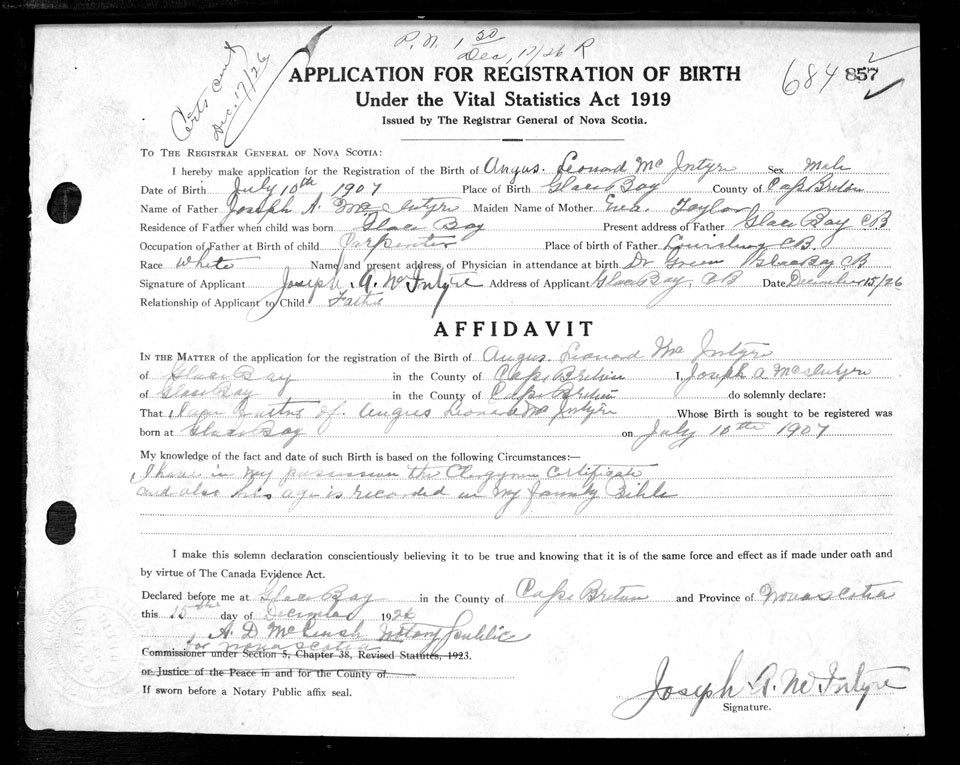 P.N. 1 20
Dec, 17/26 R
Certs sent
Dec. 17/26
684 857
APPLICATION FOR REGISTRATION OF BIRTH
Under the Vital Statistics Act 1919
Issued by The Registrar General of Nova Scotia.
TO THE REGISTRAR GENERAL OF NOVA SCOTIA:
I hereby make application for the Registration of the Birth of Angus. Leonard Mc Intyre Sex Male
Date of Birth July 10th 1907 Place of Birth Glace Bay County of Cape Breton
Name of Father Joseph A. Mc Intyre Maiden Name of Mother Eva. Taylor
Residence of Father when child was born Glace Bay Present address of Father Glace Bay CB
Occupation of Father at Birth of child Carpenter Place of birth of Father Louisburg CB.
Race White Name and present address of Physician in attendance at birth Dr Green Glace Bay CB
Signature of Applicant Joseph. A. Mc Intyre Address of Applicant Glace Bay, CB Date December 15/26
Relationship of Applicant to Child Father
AFFIDAVIT
IN THE MATTER of the application for the registration of the Birth of Angus. Leonard Mc Intyre
of Glace Bay in the County of Cape Breton I, Joseph A McIntyre
of Glace Bay in the County of Cape Breton do solemnly declare:
That of. Angus Leonard Mc Intyre Whose Birth is sought to be registered was
born at Glace Bay on July 10th 1907
My knowledge of the fact and date of such Birth is based on the following Circumstances:—
I have in my possession the Clergyman Certificate
and also his age is recorded in my family Bible
I make this solemn declaration conscientiously believing it to be true and knowing that it is of the same force and effect as if made under oath and
by virtue of The Canada Evidence Act.
Declared before me at Glace Bay in the County of Cape Breton and Province of Nova Scotia
this 15th day of December 1926
A. D. Notary Public
for Nova Scotia
Commissioner under Section 5, Chapter 38, Revised Statutes, 1923.
or Justice of the Peace in and for the County of
If sworn before a Notary Public affix seal.
Joseph A. Mc Intyre
Signature.